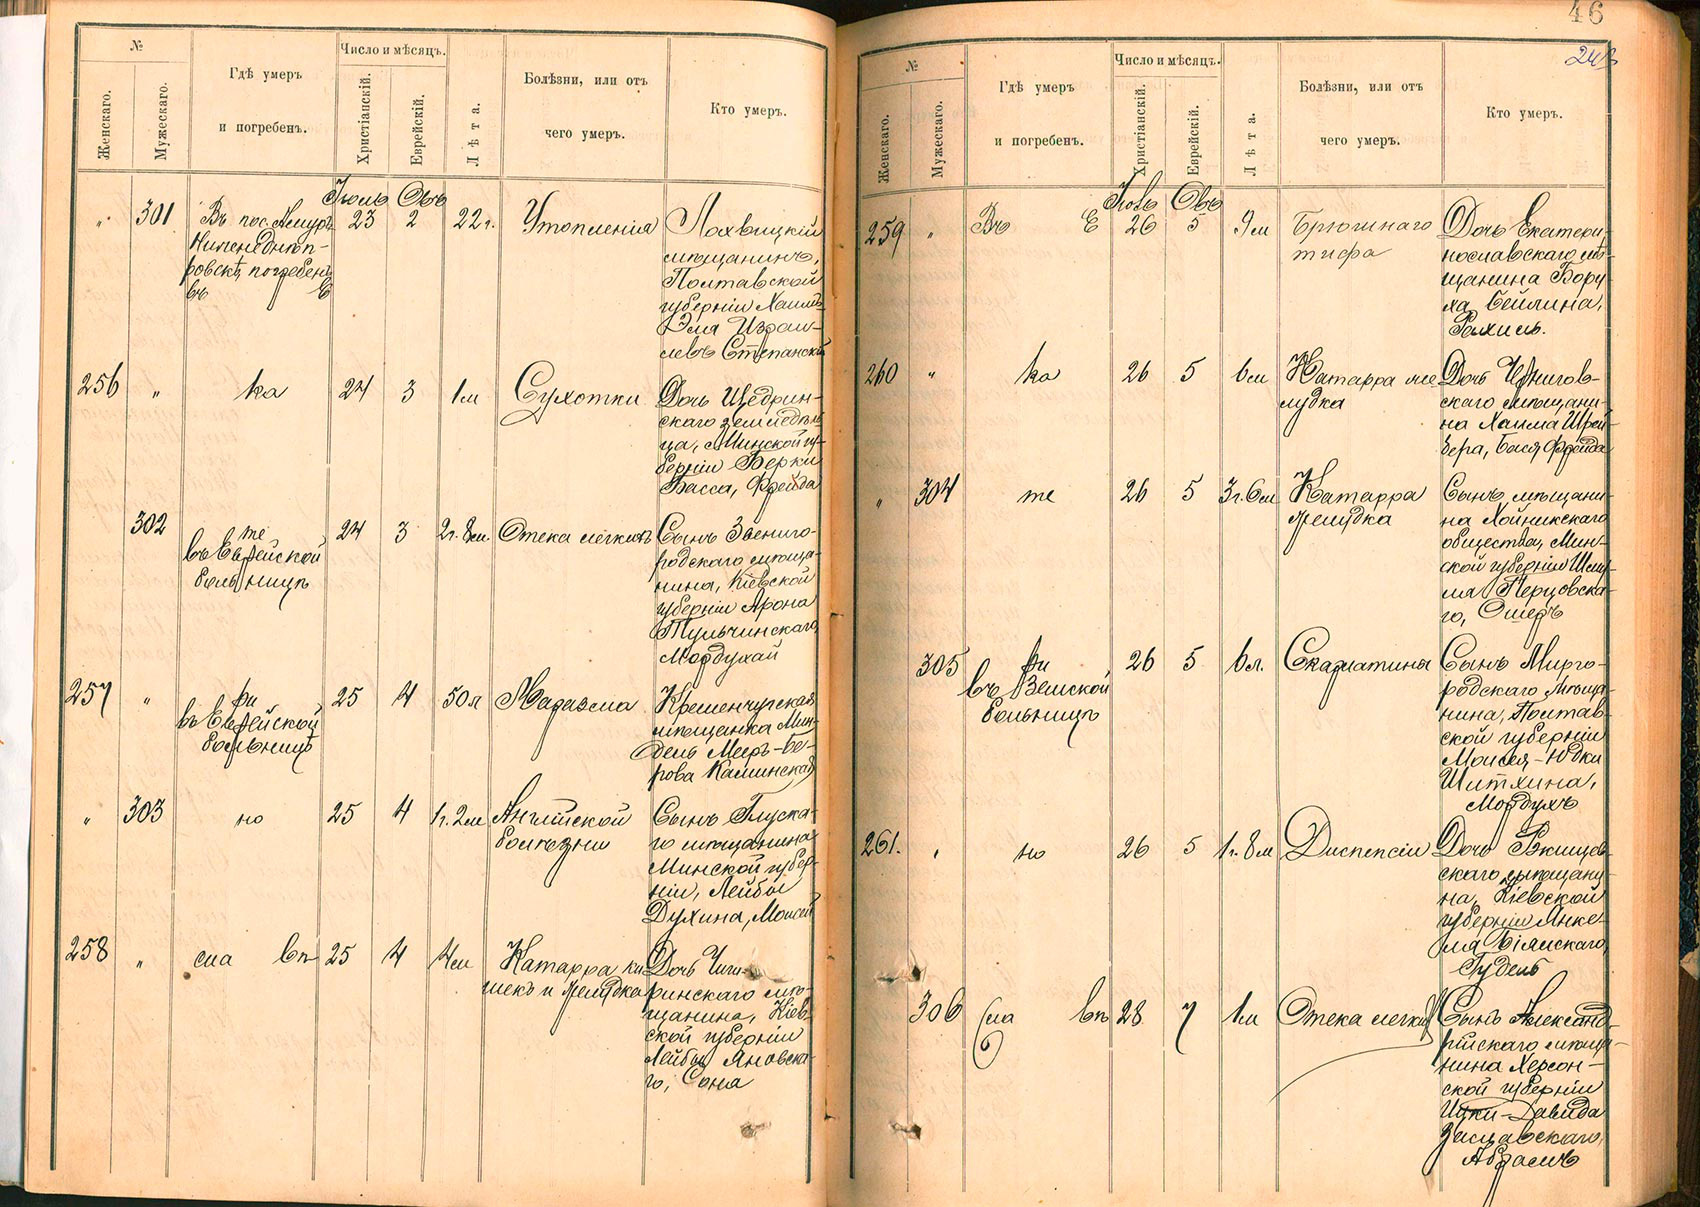 №
Женскаго.
Мужескаго.
Гдѣ умеръ
и погребенъ.
Число и мѣсяцъ.
Христіанскій.
Еврейскій.
Лѣта.
Болѣзни, или отъ
чего умеръ.
Кто умеръ.
Іюль Овъ
„ 301 23 2 22 г. Утопленія
Въ пос. Амуръ
Нижнеднѣп-
ровскѣ, погребенъ
въ Е
Лохвицкій
мѣщанинъ,
Полтавской
губерніи Хаимъ
Эля Израи-
левъ Степанскій
256 „ ка 24 3 1 м Сухотки
Дочь Щедрин-
скаго земледѣль
ца, Минской гу-
берніи Берки
Басса, Фрейда
302 те 24 3 2 г. 8 м. Отека легкихъ
въ Еврейской
больницѣ
Сынъ Звениго-
родскаго мѣща-
нина, Кіевской
губерніи Арона
Тульчинскаго,
Мордухай
257 „ ри 25 4 50 л Маразма
въ Еврейской
больницѣ
Кременчугская
мѣщанка Мин-
дель Мееръ-Бе-
рова Каминская
„ 303 но 25 4 1 г. 2 м Англійской
болѣзни
Сынъ Глуска-
го мѣщанина
Минской губер-
ніи, Лейбы
Духина, Моисей
258 „ сла вп 25 4 4 м Катарра ки
шекъ и желудка
Дочь Чиги-
ринскаго мѣ-
щанина, Кіев-
ской губерніи
Лейбы Яновска-
го, Соня
46
№
Женскаго.
Мужескаго.
Гдѣ умеръ
и погребенъ.
Число и мѣсяцъ.
Христіанскій.
Еврейскій.
Лѣта.
Болѣзни, или отъ
чего умеръ.
Кто умеръ.
Іюль Овъ
259 „ Въ Е 26 5 9 м Брюшнаго
тифа
Дочь Екатери-
нославскаго мѣ
щанина Бору-
ха Бейлина,
Рахиль.
260 „ ка 26 5 6 м Катарра же
лудка
Дочь Чернигов-
скаго мѣщани-
на Хаима Шрей-
бера, Бася Фрейда
„ 304 те 26 5 3 г. 6 м Катарра
желудка
Сынъ мѣщани-
на Хойникскаго
общества, Мин-
ской губерніи Шлу-
ма Перцовска-
го, Ошеръ
305 ри 26 5 6 л. Скарлатины
въ Земской
больницѣ
Сынъ Мирго-
родскаго мѣща-
нина, Полтав-
ской губерніи
Моисея-Юдки
Шитхина,
Мордухъ
261. „ но 26 5 1 г. 8 м Диспепсіи
Дочь Ржищев-
скаго мѣщани-
на, Кіевской
губерніи Янке-
ля
Гудель
306 сла вп 28 7 1 м Отека легкихъ
Сынъ Александ-
рійскаго мѣща-
нина Херсон-
ской губерніи
Ицки-Давида
Заславскаго,
Абрамъ